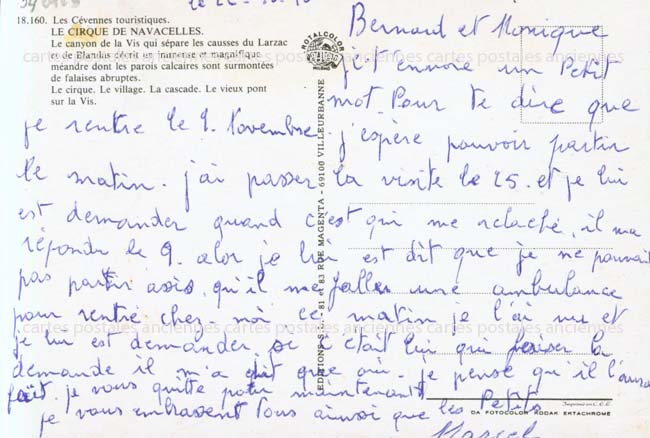 le 22-10-
18.160. Les Cévennes touristiques.
LE CIRQUE DE NAVACELLES.
Le canyon de la Vis qui sépare les causses du Larzac
et de Blandas décrit un immense et magnifique
méandre dont les parois calcaires sont surmontées
de falaises abruptes.
Le cirque. Le village. La cascade. Le vieux pont
sur la Vis.
ROTALCOLOR
EDITIONS S.L. - 81 et 83 RUE MAGENTA - 69100 VILLEURBANNE
Bernard et Monique
j't ennore un Petit
mot. Pour te dire que
j'espère pouvoir partir
je rentre le 9. Novembre
le matin. j'ai passer la visite le 25. et je lui
est demander quand c'est qui me relaché, il ma
répondr le 9. alor je lui est dit que je ne pouvait
pas partir asis. qu'il me faller une ambulance
pour rentré chez-moi ce matin je l'ai vu et
je lui est demander se c'était lui qui faiser la
demande il m'a dit que oui. je pense qu'il l'aura
fait. je vous quitte pour maintenant
je vous embrassent tous ainsi que les Petits
Marcel
Imprimé en C.E.E.
DA FOTOCOLOR KODAK EKTACHROME
cartes postales anciennes cartes postales anciennes cartes postales anciennes